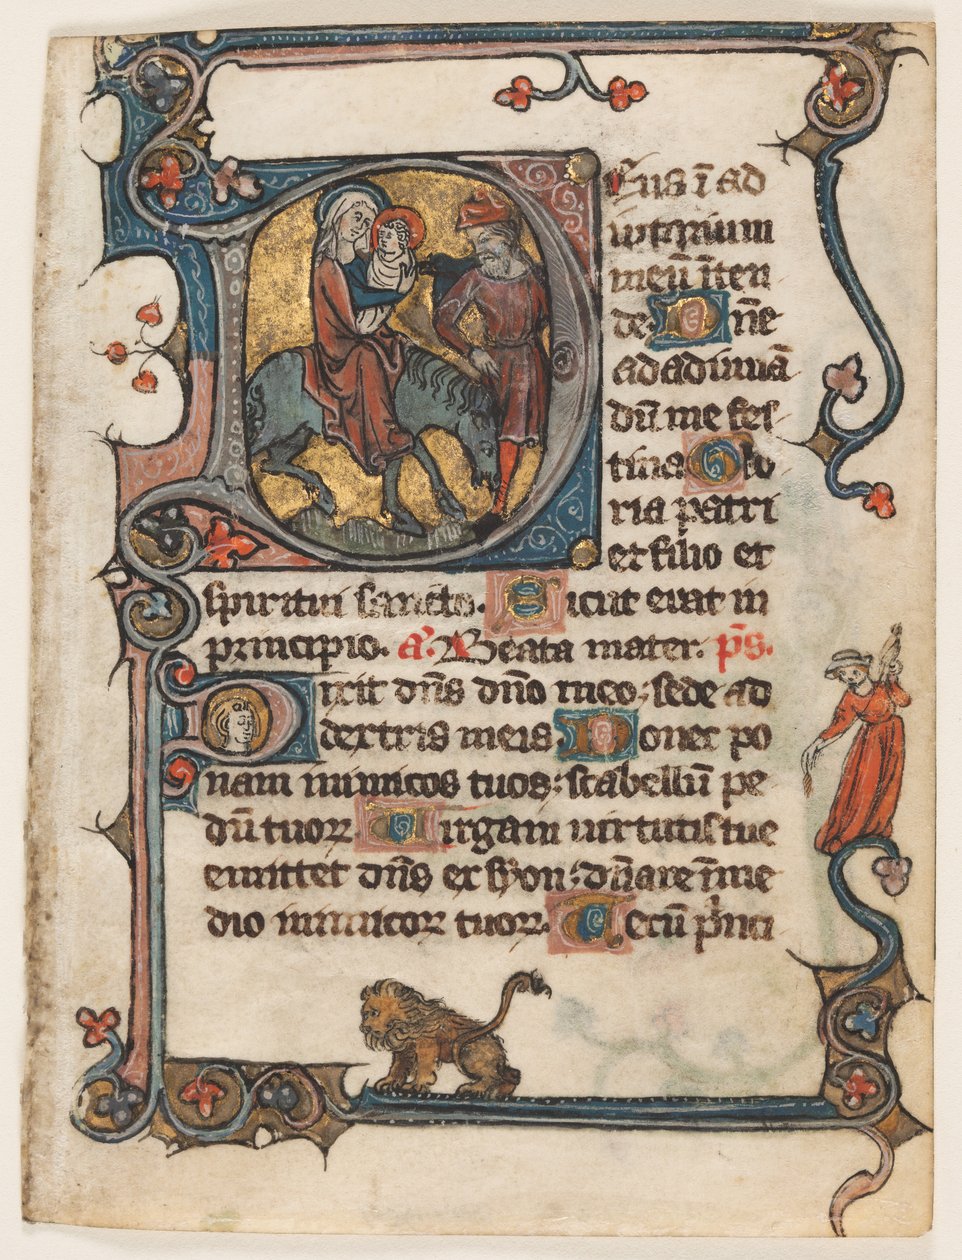 eus ī ad
iutorium
meū īten
de. Dn̄e
ad adiuuā
dū me fes
tina Glo
ria patri
et filio et
spiritui sancto. Sicut erat in
principio. a. Beata mater. p̄s.
Dixit dn̄s dn̄o meo: sede ad
dextris meis. Donec po
nam inimicos tuos: scabellū pe
dū tuoꝝ. Virgam uirtutis tue
emittet dn̄s ex syon: dn̄are ī me
dio inimicoꝝ tuoꝝ. Tecū pͥnci